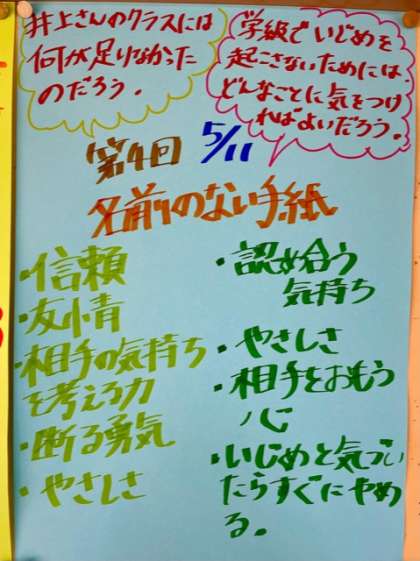 井上さんのクラスには
何が足りなかった
のだろう。
学級でいじめを
起こさないためには、
どんなことに気をつけ
ればよいだろう。
第4回 5/11
名前のない手紙
・信頼
・友情
・相手の気持ち
を考える力
・断る勇気
・やさしさ
・認め合う
気持ち
・やさしさ
・相手をおもう
心
・いじめと気づい
たらすぐにやめ
る。